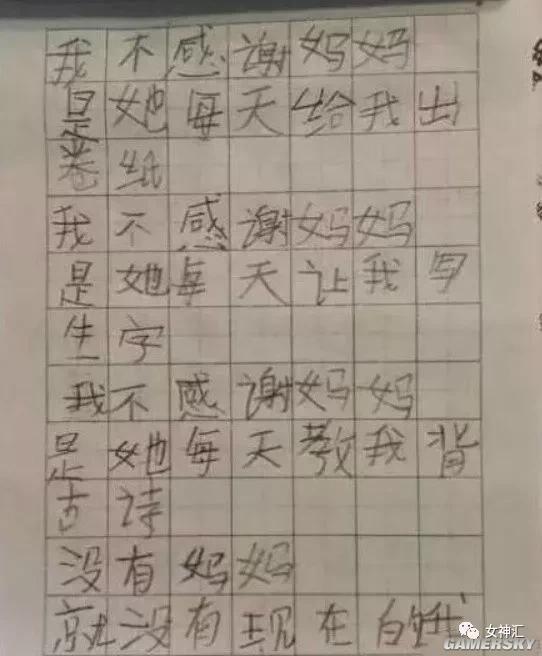 我不感谢妈妈
是她每天给我出
卷纸
我不感谢妈妈
是她每天让我写
生字
我不感谢妈妈
是她每天教我背
古诗
没有妈妈
就没有现在的我
女神汇
GAMERSKY